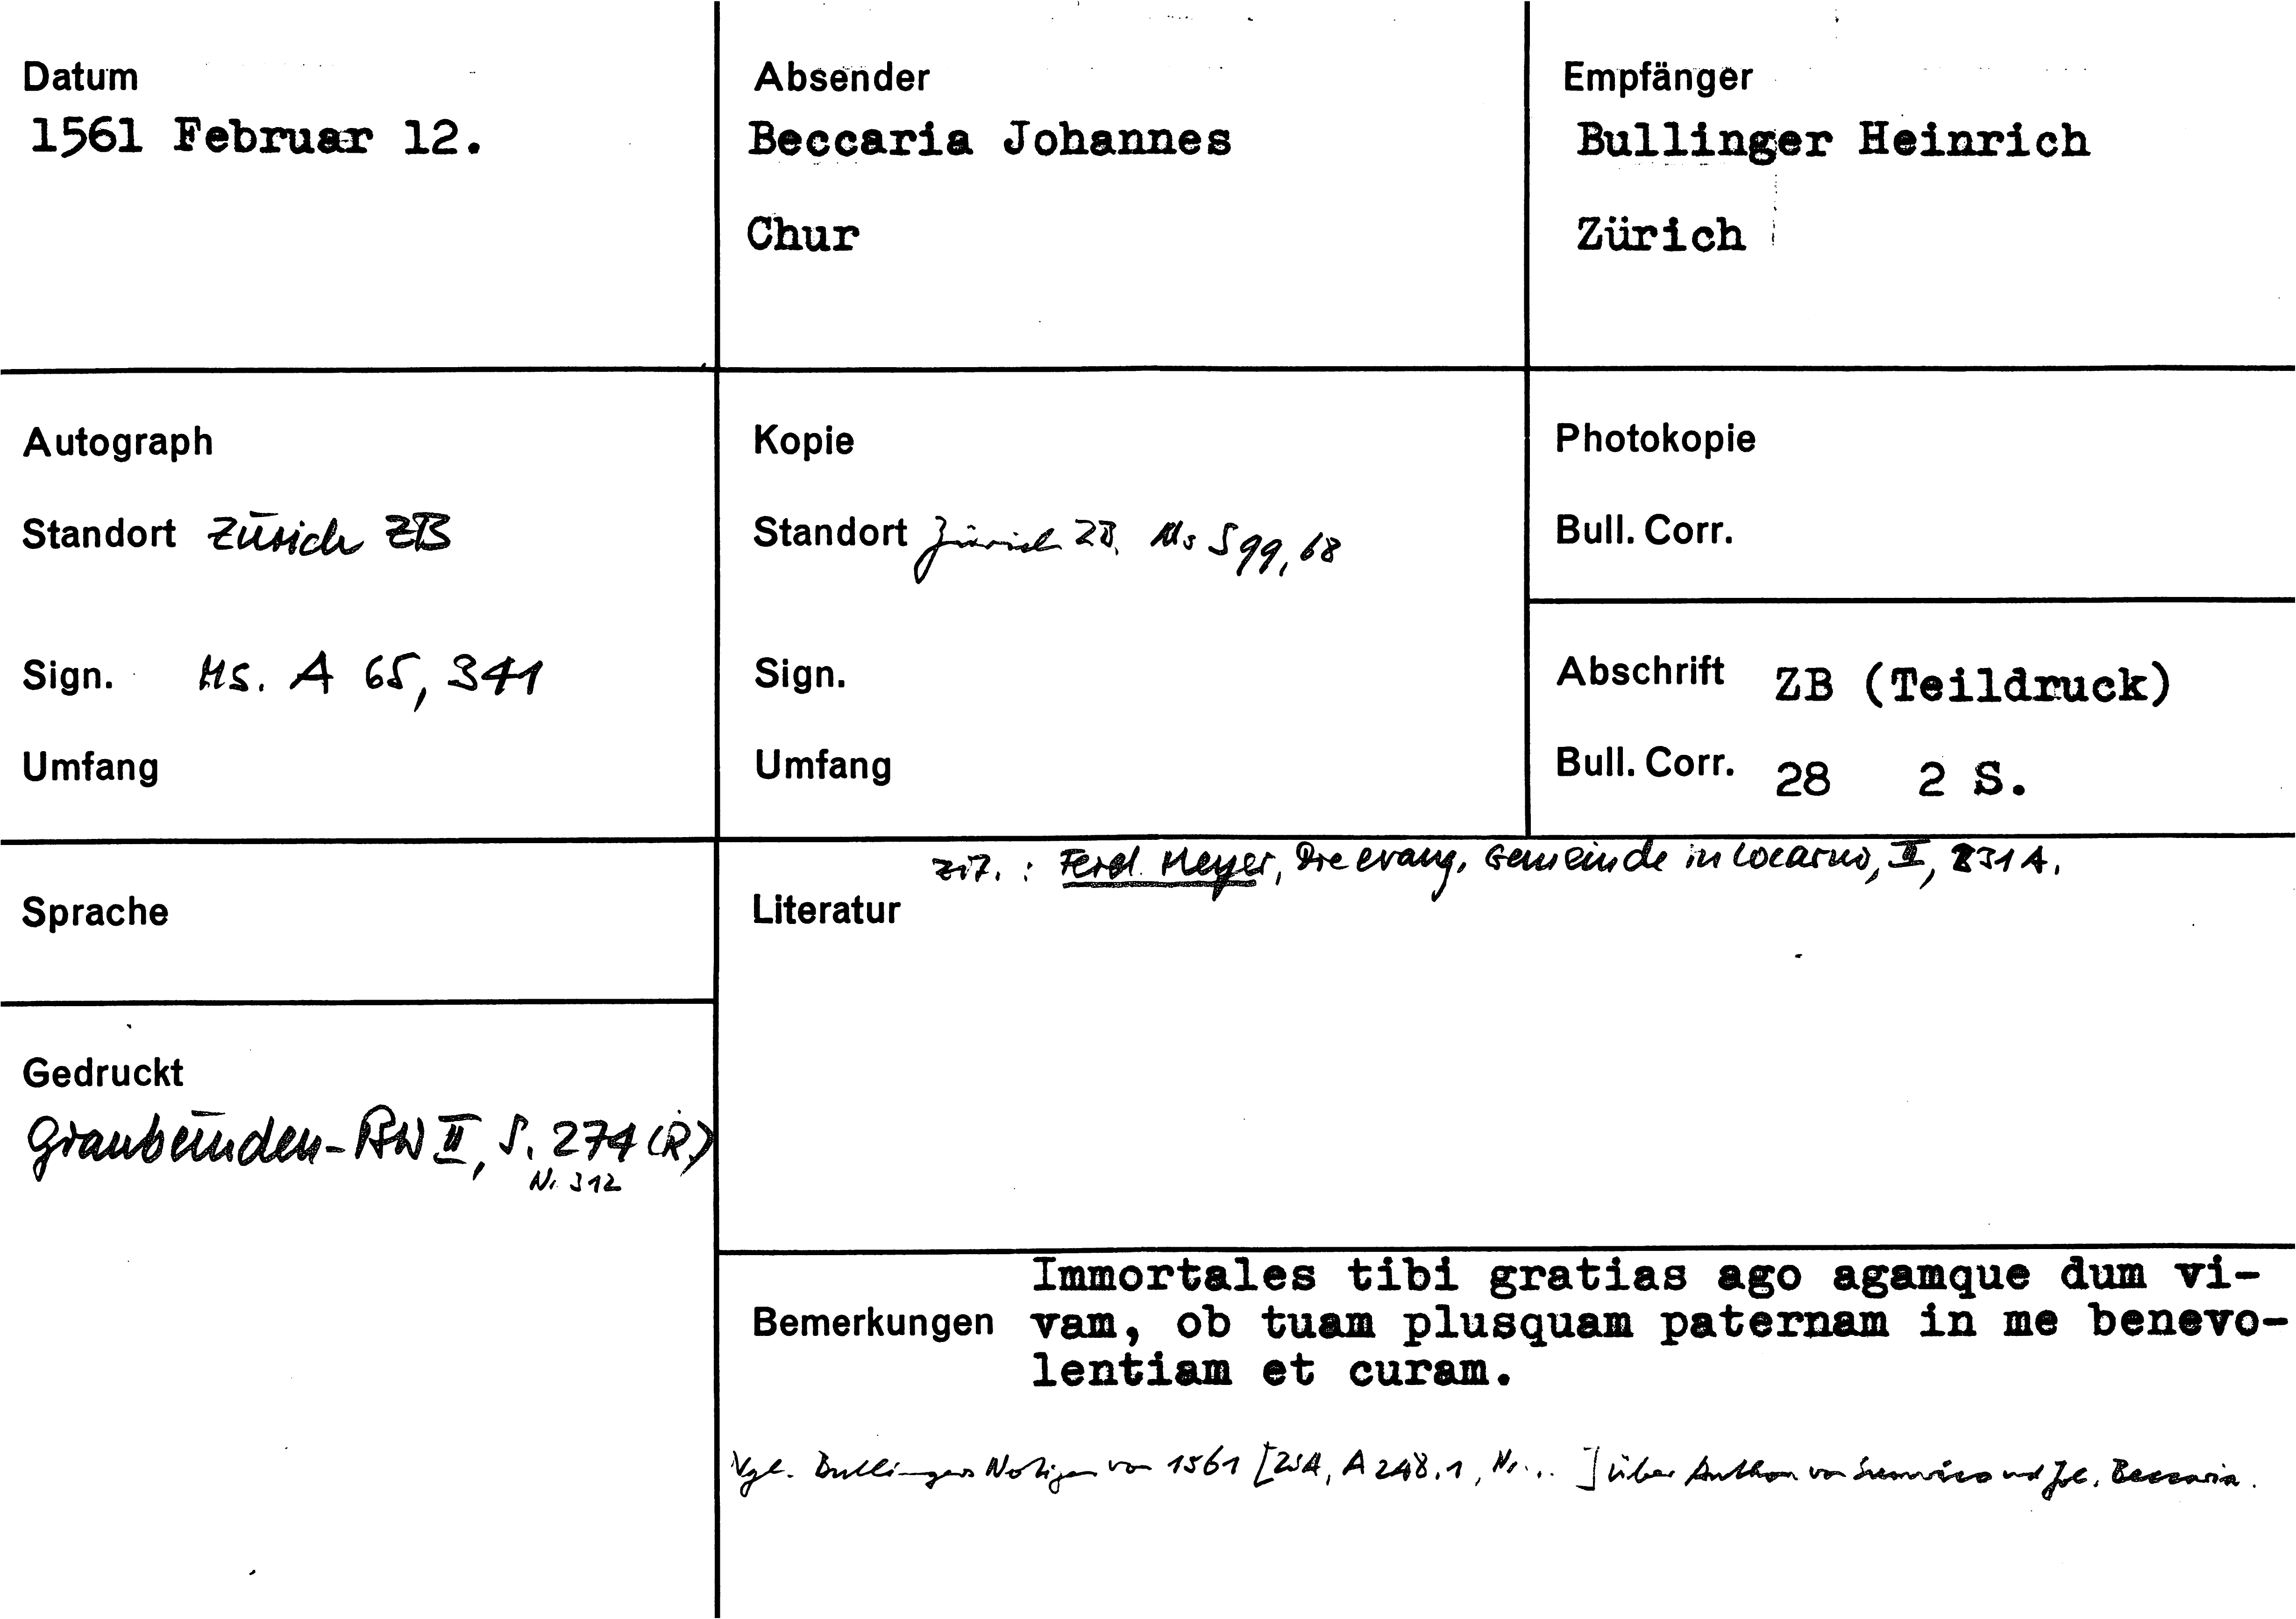 Datum
1561 Februar 12.
Absender
Beccaria Johannes
Chur
Empfänger
Bullinger Heinrich
Zürich
Autograph
Standort Zürich ZB
Sign. Ms. A 65, 341
Umfang
Kopie
Standort Zürich ZB. Ms S 99, 68
Sign.
Umfang
Photokopie
Bull. Corr.
Abschrift ZB (Teildruck)
Bull. Corr. 28 2 S.
Sprache
Gedruckt
Graubünden-BW II, S. 274 (R)
Nr. 312
zit. : Ferd. Meyer, Die evang. Gemeinde in Locarno, II, 231 A.
Literatur
Immortales tibi gratias ago agamque dum vi-
Bemerkungen vam, ob tuam plusquam paternam in me benevo-
lentiam et curam.
Vgl. Bullingers Notizen von 1561 [ZStA, A 248.1, Nr... ] über Anthon von und Joh. Beccaria.